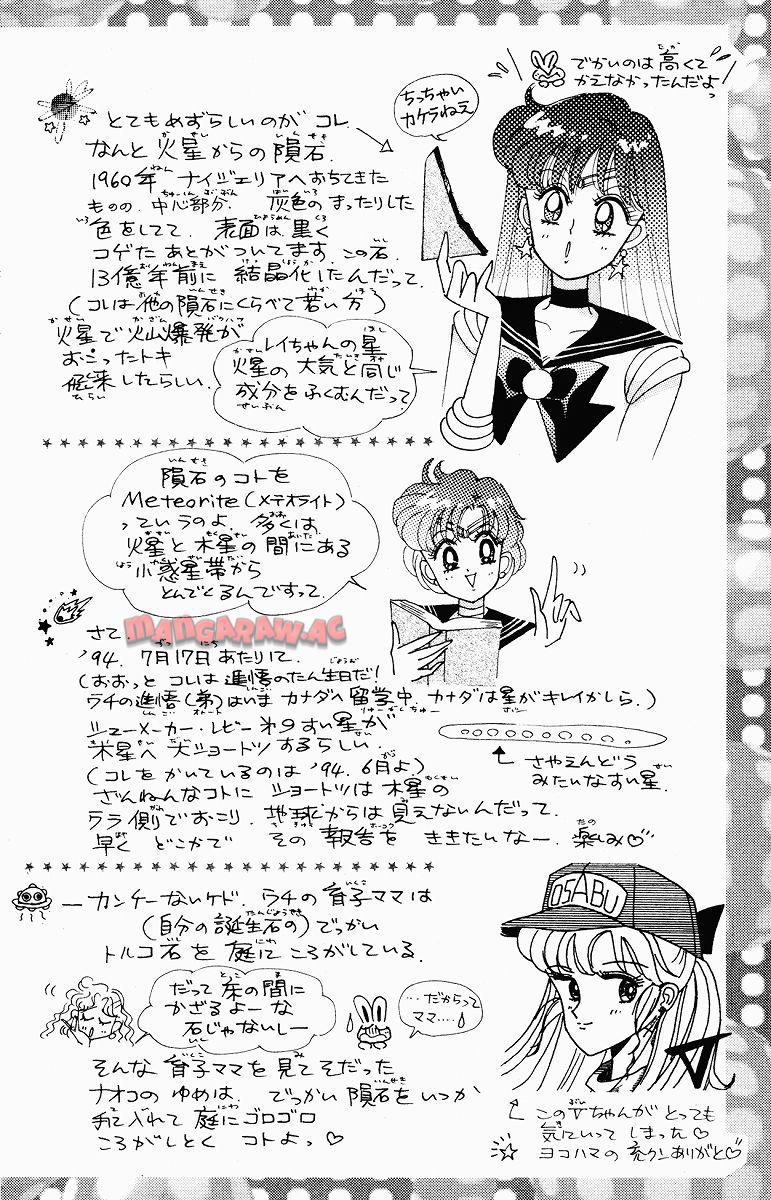 でかいのは高くて
かえなかったんだよっ
ちっちゃい
カケラねえ
とてもめずらしいのが コレ
なんと 火星からの 隕石.
1960年 ナイジェリアへおちてきた
ものの、中心部分. 灰色の まったりした
色をしてて. 表面は 黒く
コゲた あとが ついてます この石.
13億年前に 結晶化したんだって.
(コレは他の隕石にくらべて若い方)
火星で火山爆発が
おこったトキ
飛来したらしい.
レイちゃんの星
火星の 大気と同じ
成分をふくむんだって.
隕石のコトを
Meteorite(メテオライト)
っていうのよ. 多くは
火星と 木星の間にある
小惑星帯から
とんでくるんですって.
さて
MANGARAW.AC
'94. 7月17日あたりに.
(おおっと コレは進悟のたん生日だ!
ウチの進悟(弟)はいま カナダへ留学中. カナダは星がキレイかしら.)
シューメーカー・レビー 第9すい星が
木星へ 大ショートツ するらしい.
(コレをかいているのは '94. 6月よ)
ざんねんなコトに ショートツは 木星の
ウラ側でおこり. 地球からは見えないんだって.
早く どこかで その 報告を ききたいなー. 楽しみ♡
さやえんどう
みたいなすい星.
カンケーないケド. ウチの 育子ママは
(自分の誕生石の)でっかい
トルコ石を 庭に ころがしている.
だって 床の間に
かざるよーな
石じゃないしー
…だからって
ママ….
そんな 育子ママを見て そだった
ナオコの ゆめは. でっかい 隕石を いつか
手に入れて 庭に ゴロゴロ
ころがしとく コトよっ♡
OSABU
V
この Vちゃんが とっても
気にいって しまった♡
ヨコハマの 充クンありがと♡